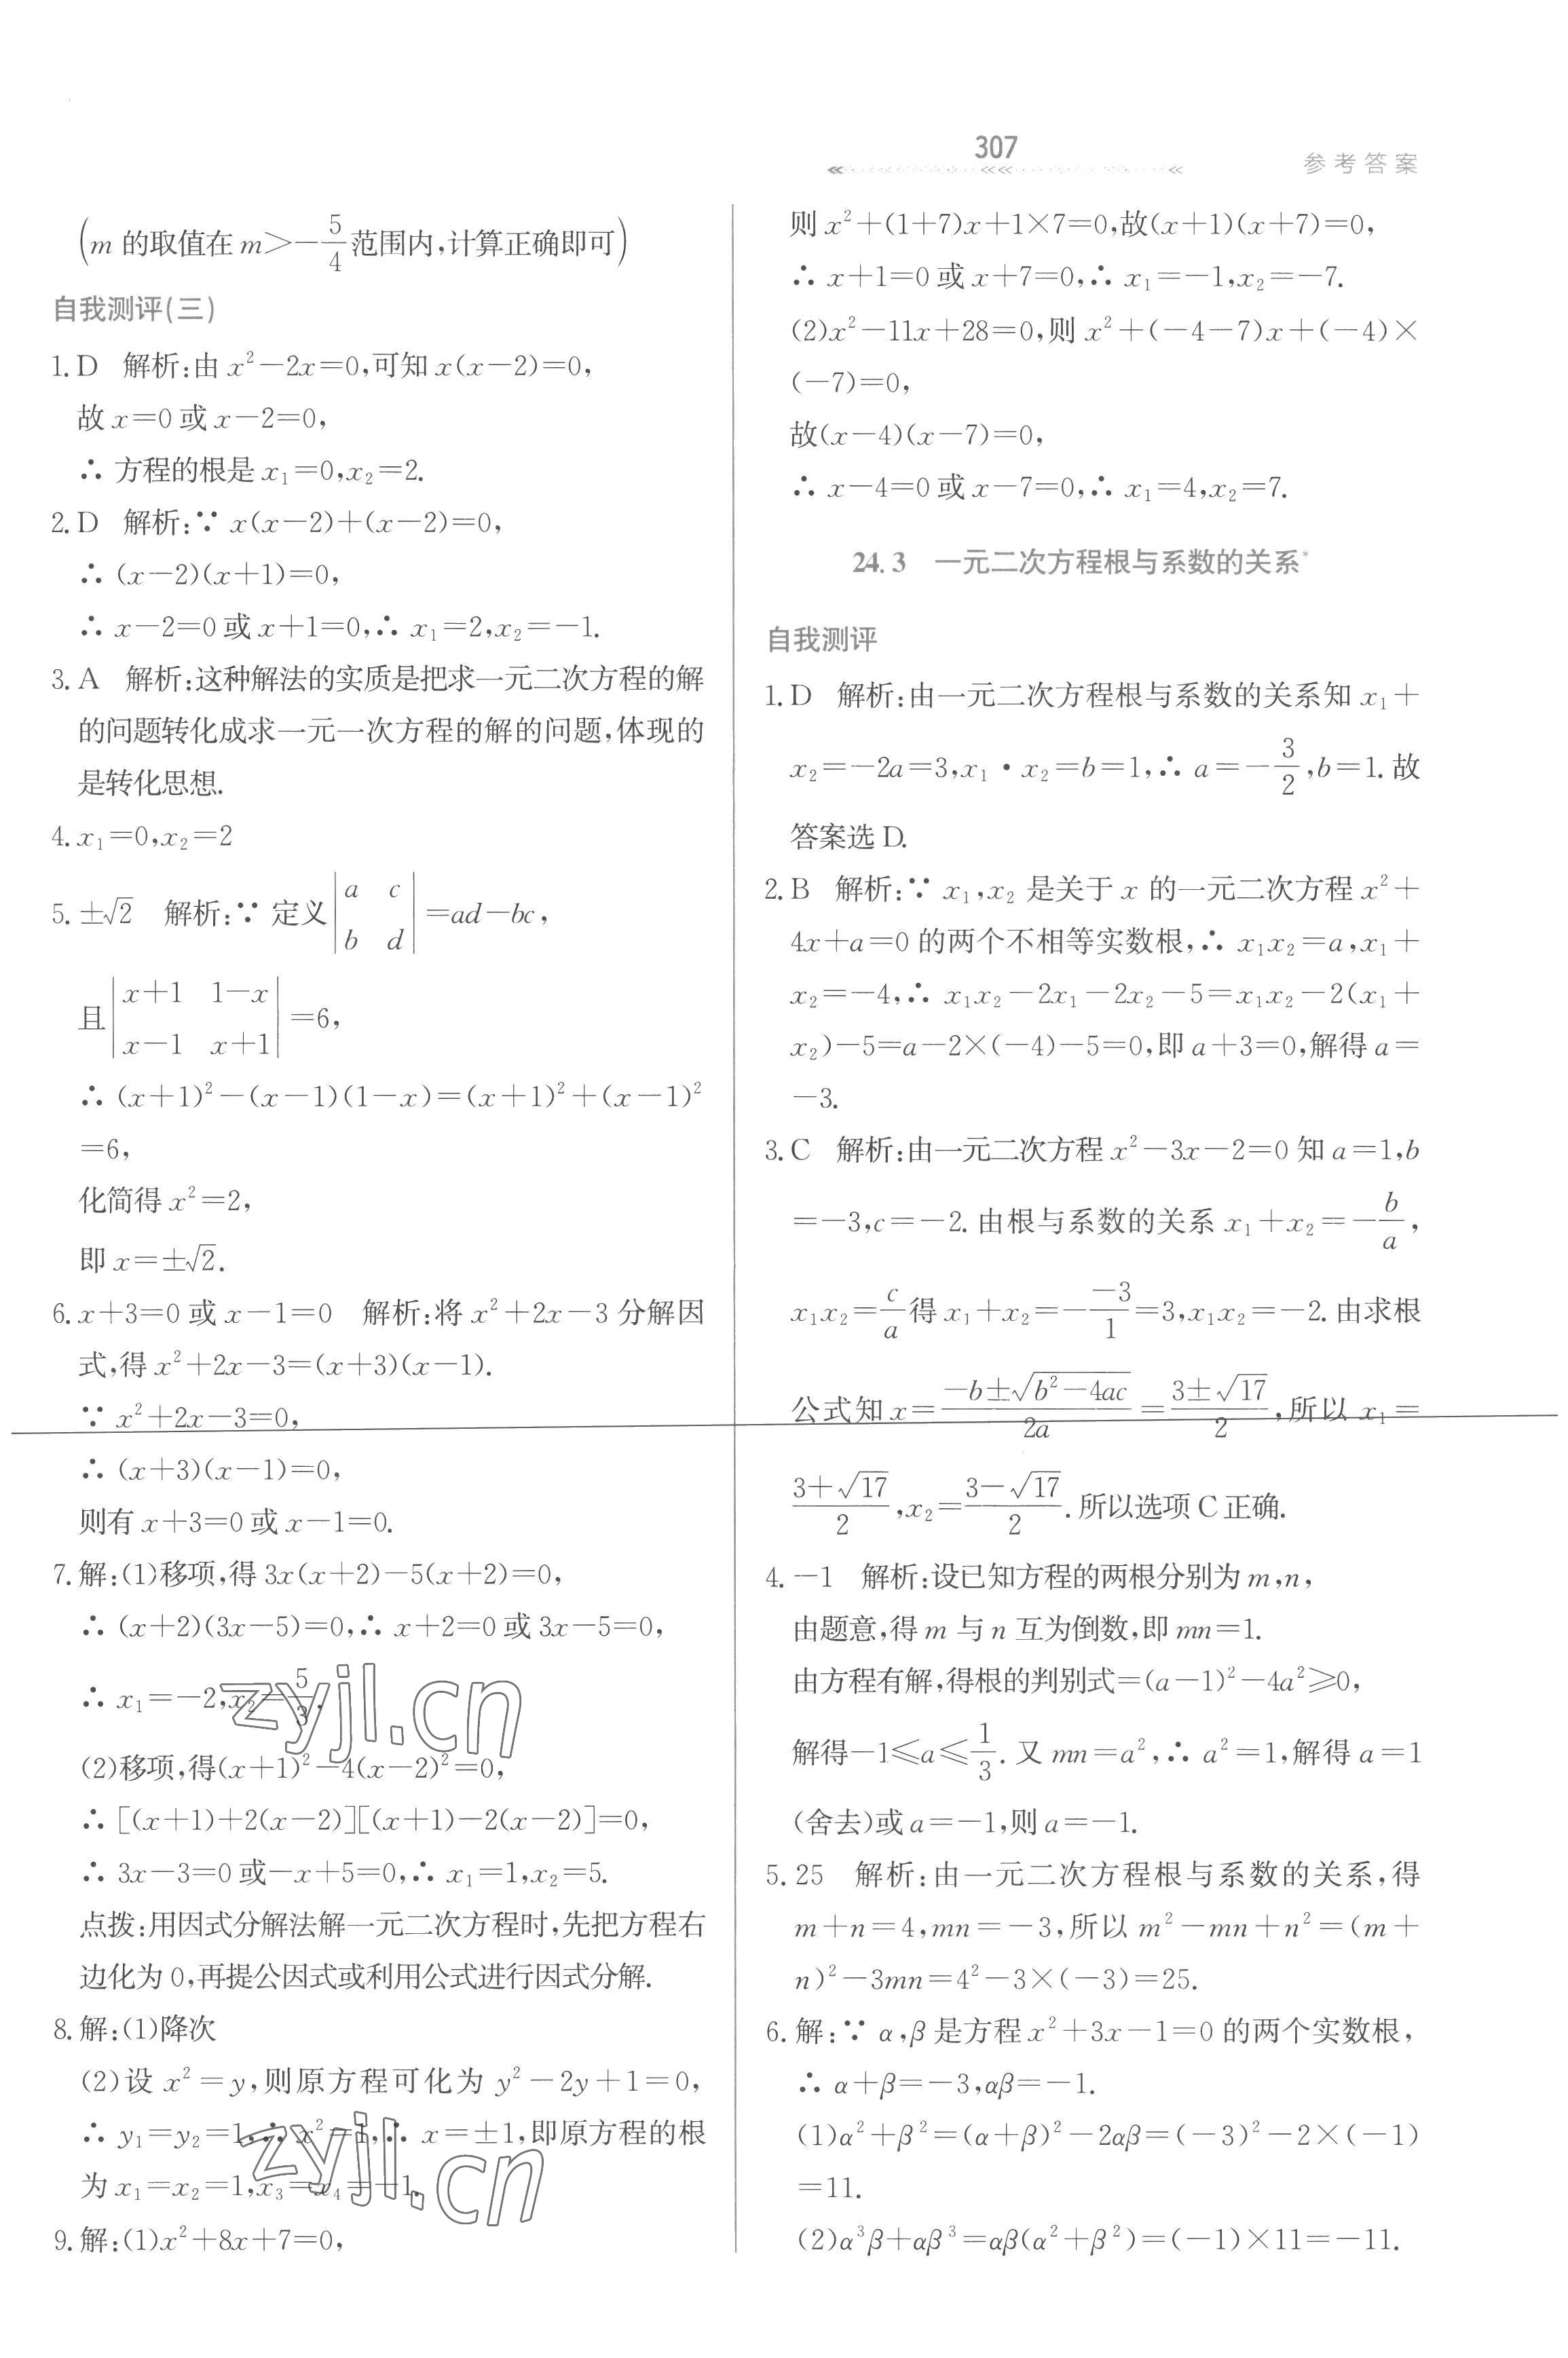 307
参考答案
(m 的取值在 m>-5/4 范围内,计算正确即可)
自我测评(三)
1. D 解析:由 x²-2x=0,可知 x(x-2)=0,
故 x=0 或 x-2=0,
∴ 方程的根是 x₁=0,x₂=2.
2. D 解析:∵ x(x-2)+(x-2)=0,
∴ (x-2)(x+1)=0,
∴ x-2=0 或 x+1=0,∴ x₁=2,x₂=-1.
3. A 解析:这种解法的实质是把求一元二次方程的解
的问题转化成求一元一次方程的解的问题,体现的
是转化思想.
4. x₁=0,x₂=2
5. ±√2 解析:∵ 定义 |a c; b d| =ad-bc,
且 |x+1 1-x; x-1 x+1| =6,
∴ (x+1)²-(x-1)(1-x)=(x+1)²+(x-1)²
=6,
化简得 x²=2,
即 x=±√2.
6. x+3=0 或 x-1=0 解析:将 x²+2x-3 分解因
式,得 x²+2x-3=(x+3)(x-1).
∵ x²+2x-3=0,
∴ (x+3)(x-1)=0,
则有 x+3=0 或 x-1=0.
7. 解:(1)移项,得 3x(x+2)-5(x+2)=0,
∴ (x+2)(3x-5)=0,∴ x+2=0 或 3x-5=0,
∴ x₁=-2,x₂=5/3.
zyjl.cn
(2)移项,得(x+1)²-4(x-2)²=0,
∴ [(x+1)+2(x-2)][(x+1)-2(x-2)]=0,
∴ 3x-3=0 或-x+5=0,∴ x₁=1,x₂=5.
点拨:用因式分解法解一元二次方程时,先把方程右
边化为 0,再提公因式或利用公式进行因式分解.
8. 解:(1)降次
(2)设 x²=y,则原方程可化为 y²-2y+1=0,
∴ y₁=y₂=1,∴ x²=1,∴ x=±1,即原方程的根
为 x₁=x₂=1,x₃=x₄=-1.
zyjl.cn
9. 解:(1)x²+8x+7=0,
则 x²+(1+7)x+1×7=0,故(x+1)(x+7)=0,
∴ x+1=0 或 x+7=0,∴ x₁=-1,x₂=-7.
(2)x²-11x+28=0,则 x²+(-4-7)x+(-4)×
(-7)=0,
故(x-4)(x-7)=0,
∴ x-4=0 或 x-7=0,∴ x₁=4,x₂=7.
24.3 一元二次方程根与系数的关系*
自我测评
1. D 解析:由一元二次方程根与系数的关系知 x₁+
x₂=-2a=3,x₁·x₂=b=1,∴ a=-3/2,b=1.故
答案选 D.
2. B 解析:∵ x₁,x₂ 是关于 x 的一元二次方程 x²+
4x+a=0 的两个不相等实数根,∴ x₁x₂=a,x₁+
x₂=-4,∴ x₁x₂-2x₁-2x₂-5=x₁x₂-2(x₁+
x₂)-5=a-2×(-4)-5=0,即 a+3=0,解得 a=
-3.
3. C 解析:由一元二次方程 x²-3x-2=0 知 a=1,b
=-3,c=-2.由根与系数的关系 x₁+x₂=-b/a,
x₁x₂=c/a 得 x₁+x₂=-(-3)/1=3,x₁x₂=-2.由求根
公式知 x=(-b±√(b²-4ac))/2a=(3±√17)/2,所以 x₁=
(3+√17)/2,x₂=(3-√17)/2.所以选项 C 正确.
4. -1 解析:设已知方程的两根分别为 m,n,
由题意,得 m 与 n 互为倒数,即 mn=1.
由方程有解,得根的判别式=(a-1)²-4a²≥0,
解得-1≤a≤1/3.又 mn=a²,∴ a²=1,解得 a=1
(舍去)或 a=-1,则 a=-1.
5. 25 解析:由一元二次方程根与系数的关系,得
m+n=4,mn=-3,所以 m²-mn+n²=(m+
n)²-3mn=4²-3×(-3)=25.
6. 解:∵ α,β 是方程 x²+3x-1=0 的两个实数根,
∴ α+β=-3,αβ=-1.
(1)α²+β²=(α+β)²-2αβ=(-3)²-2×(-1)
=11.
(2)α³β+αβ³=αβ(α²+β²)=(-1)×11=-11.